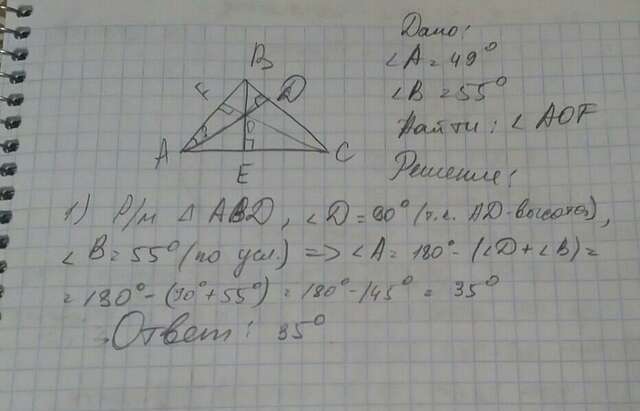 Дано:
∠A = 49°
∠B = 55°
Найти: ∠AOF
Решение:
B
F
D
O
A
E
C
1) Р/м △ ABD, ∠D = 90° (т.к. AD-высота),
∠B = 55° (по усл.) => ∠A = 180° - (∠D + ∠B) =
= 180° - (90° + 55°) = 180° - 145° = 35°
Ответ: 35°